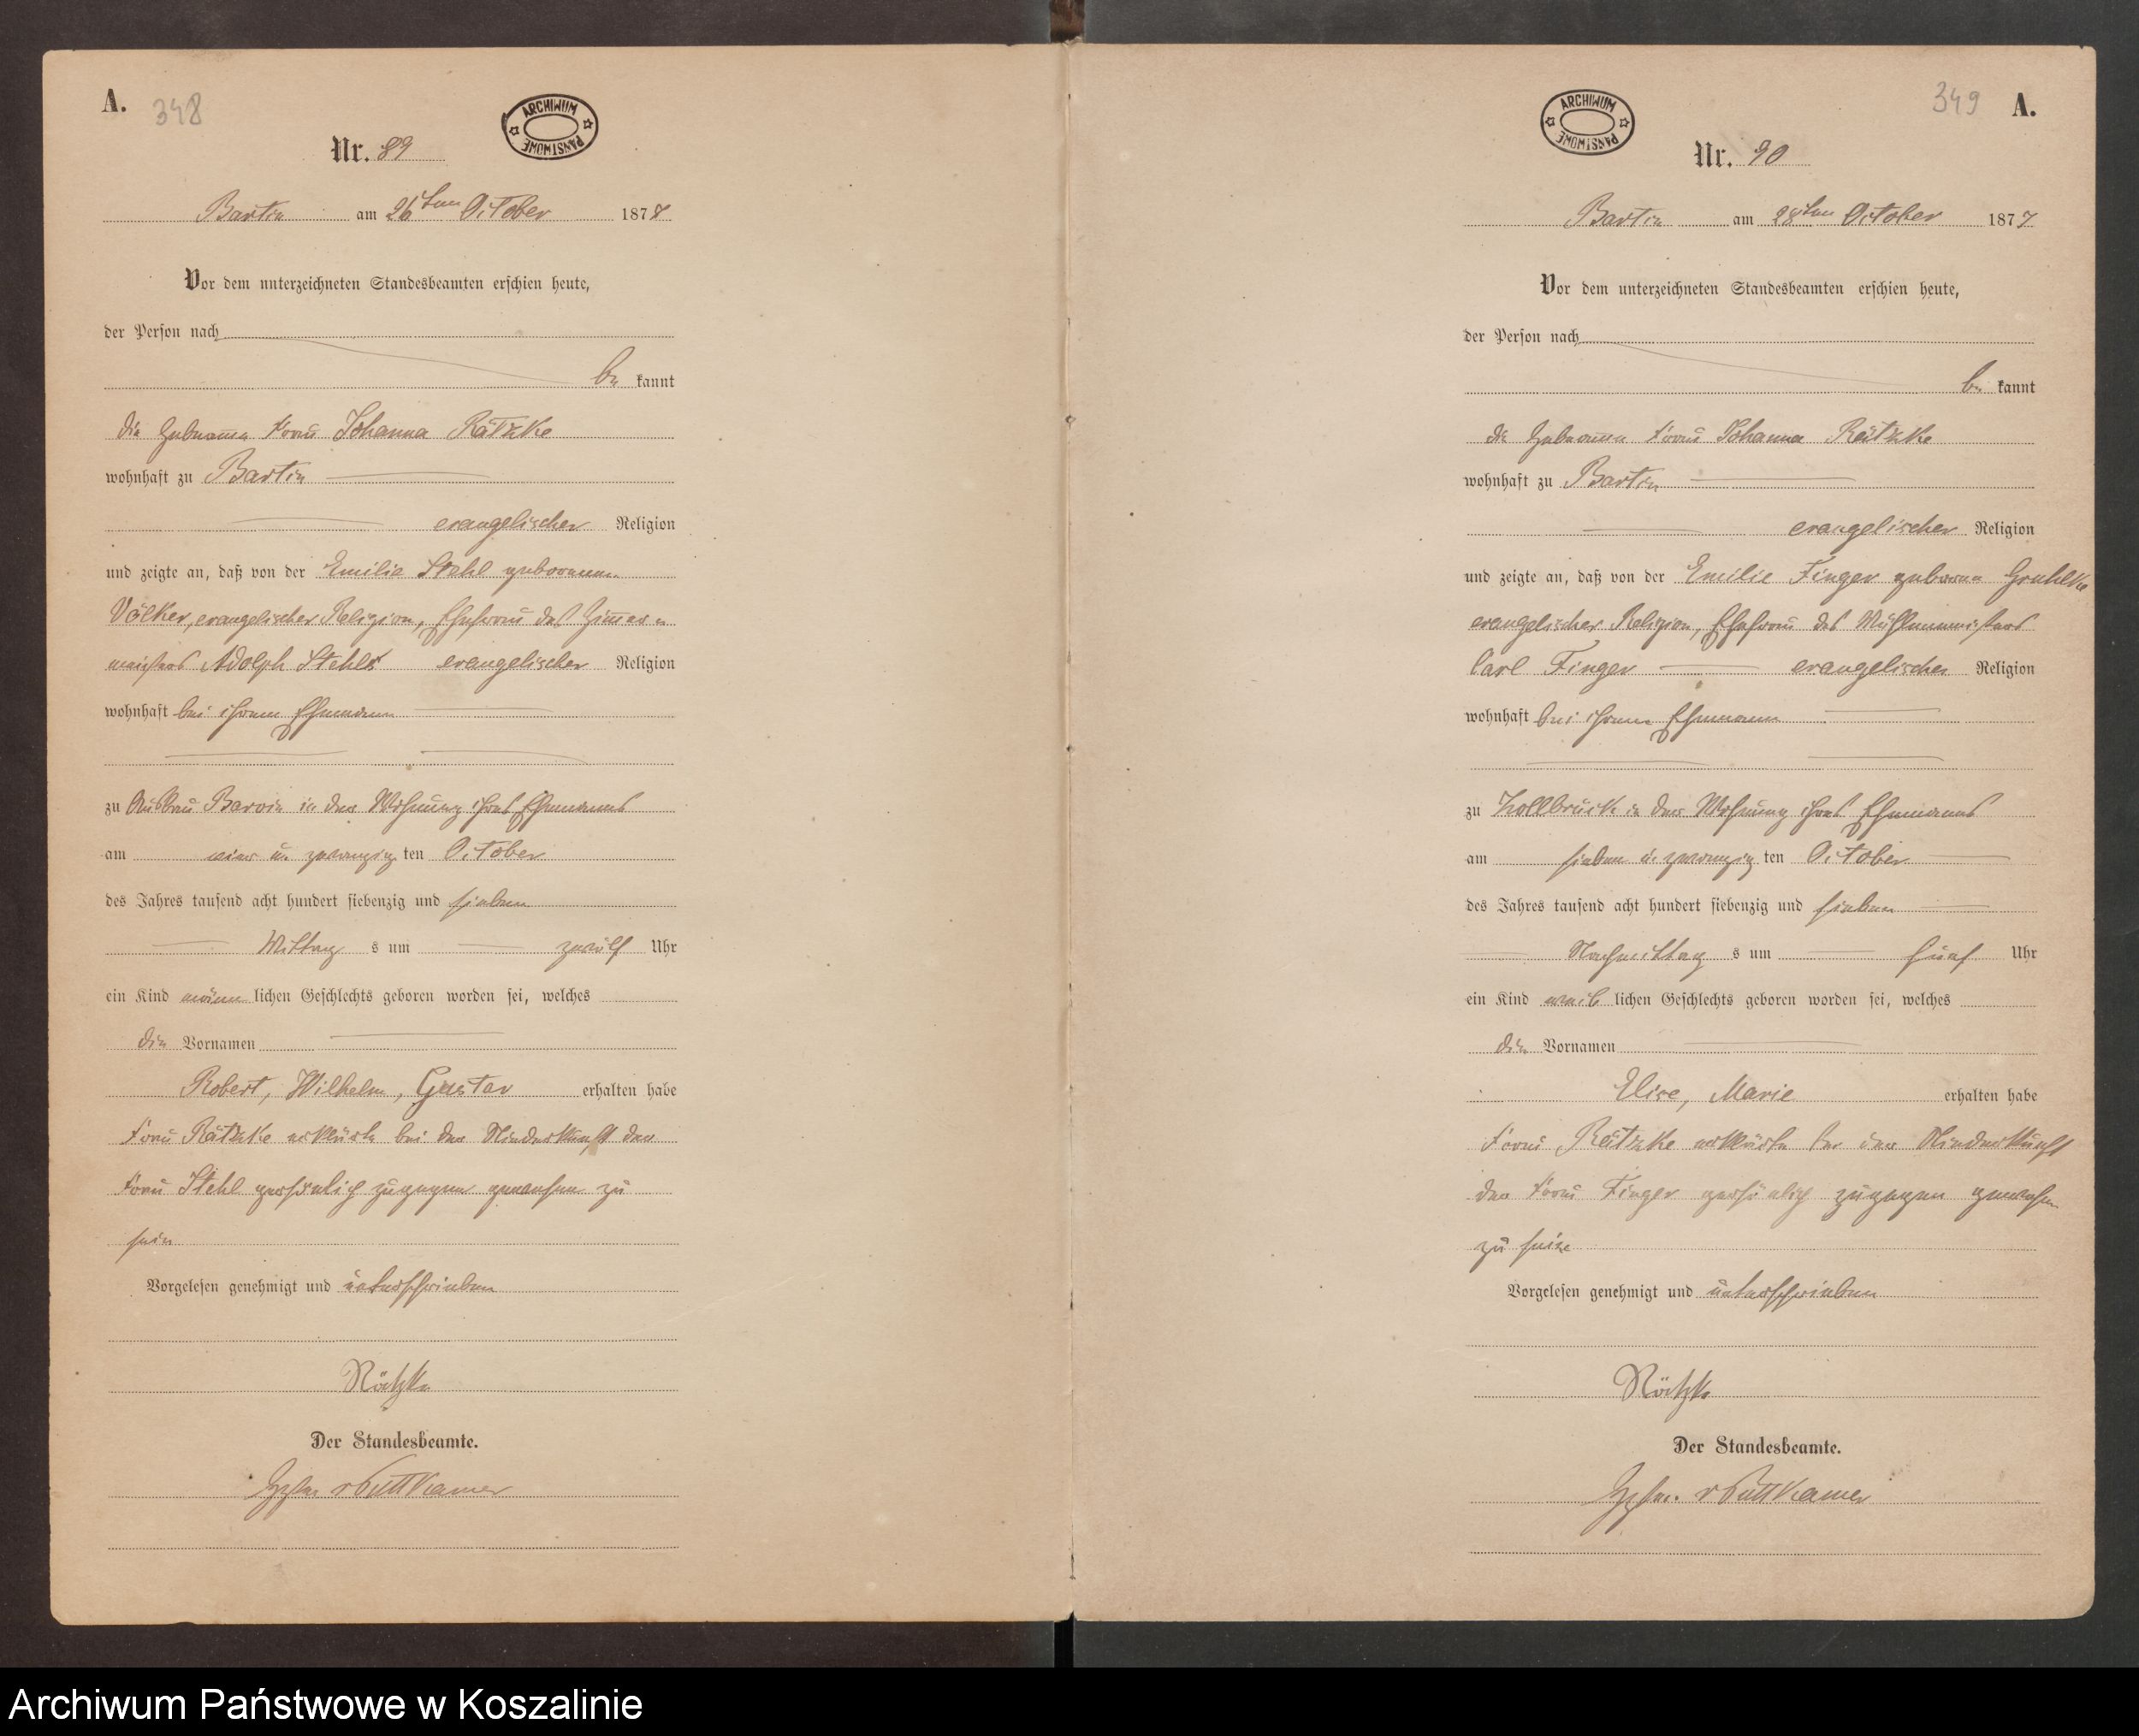 A. 348
ARCHIWUM PAŃSTWOWE
Nr. 89
Bartin am 26ten October 1877
Vor dem unterzeichneten Standesbeamten erschien heute,
der Person nach
be kannt
die Hebamme Frau Johanna Rätzke
wohnhaft zu Bartin
evangelischer Religion
und zeigte an, daß von der Emilie Stehl geborenen
Völker, evangelischer Religion, Ehefrau des Zimmer=
meisters Adolph Stehls evangelischer Religion
wohnhaft bei ihrem Ehemann
zu Ausbau Barvin in der Wohnung ihres Ehemanns
am vier u. zwanzig ten October
des Jahres tausend acht hundert siebenzig und sieben
Mittag s um zwölf Uhr
ein Kind männ lichen Geschlechts geboren worden sei, welches
die Vornamen
Robert, Wilhelm, Gustav erhalten habe
Frau Rätzke erklärte bei der Niederkunft der
Frau Stehl persönlich zugegen gewesen zu
sein
Vorgelesen genehmigt und unterschrieben
Rätzke
Der Standesbeamte.
v Puttkamer
349 A.
ARCHIWUM PAŃSTWOWE
Nr. 90
Bartin am 28ten October 1877
Vor dem unterzeichneten Standesbeamten erschien heute,
der Person nach
be kannt
die Hebamme Frau Johanna Rätzke
wohnhaft zu Bartin
evangelischer Religion
und zeigte an, daß von der Emilie Finger geborene Gruhlke
evangelischer Religion, Ehefrau des Mühlenmeisters
Carl Finger evangelischer Religion
wohnhaft bei ihrem Ehemann
zu Zollbrück in der Wohnung ihres Ehemanns
am sieben u. zwanzig ten October
des Jahres tausend acht hundert siebenzig und sieben
Nachmittag s um fünf Uhr
ein Kind weib lichen Geschlechts geboren worden sei, welches
die Vornamen
Elise, Marie erhalten habe
Frau Rätzke erklärte bei der Niederkunft
der Frau Finger persönlich zugegen gewesen
zu sein
Vorgelesen genehmigt und unterschrieben
Rätzke
Der Standesbeamte.
v Puttkamer
Archiwum Państwowe w Koszalinie